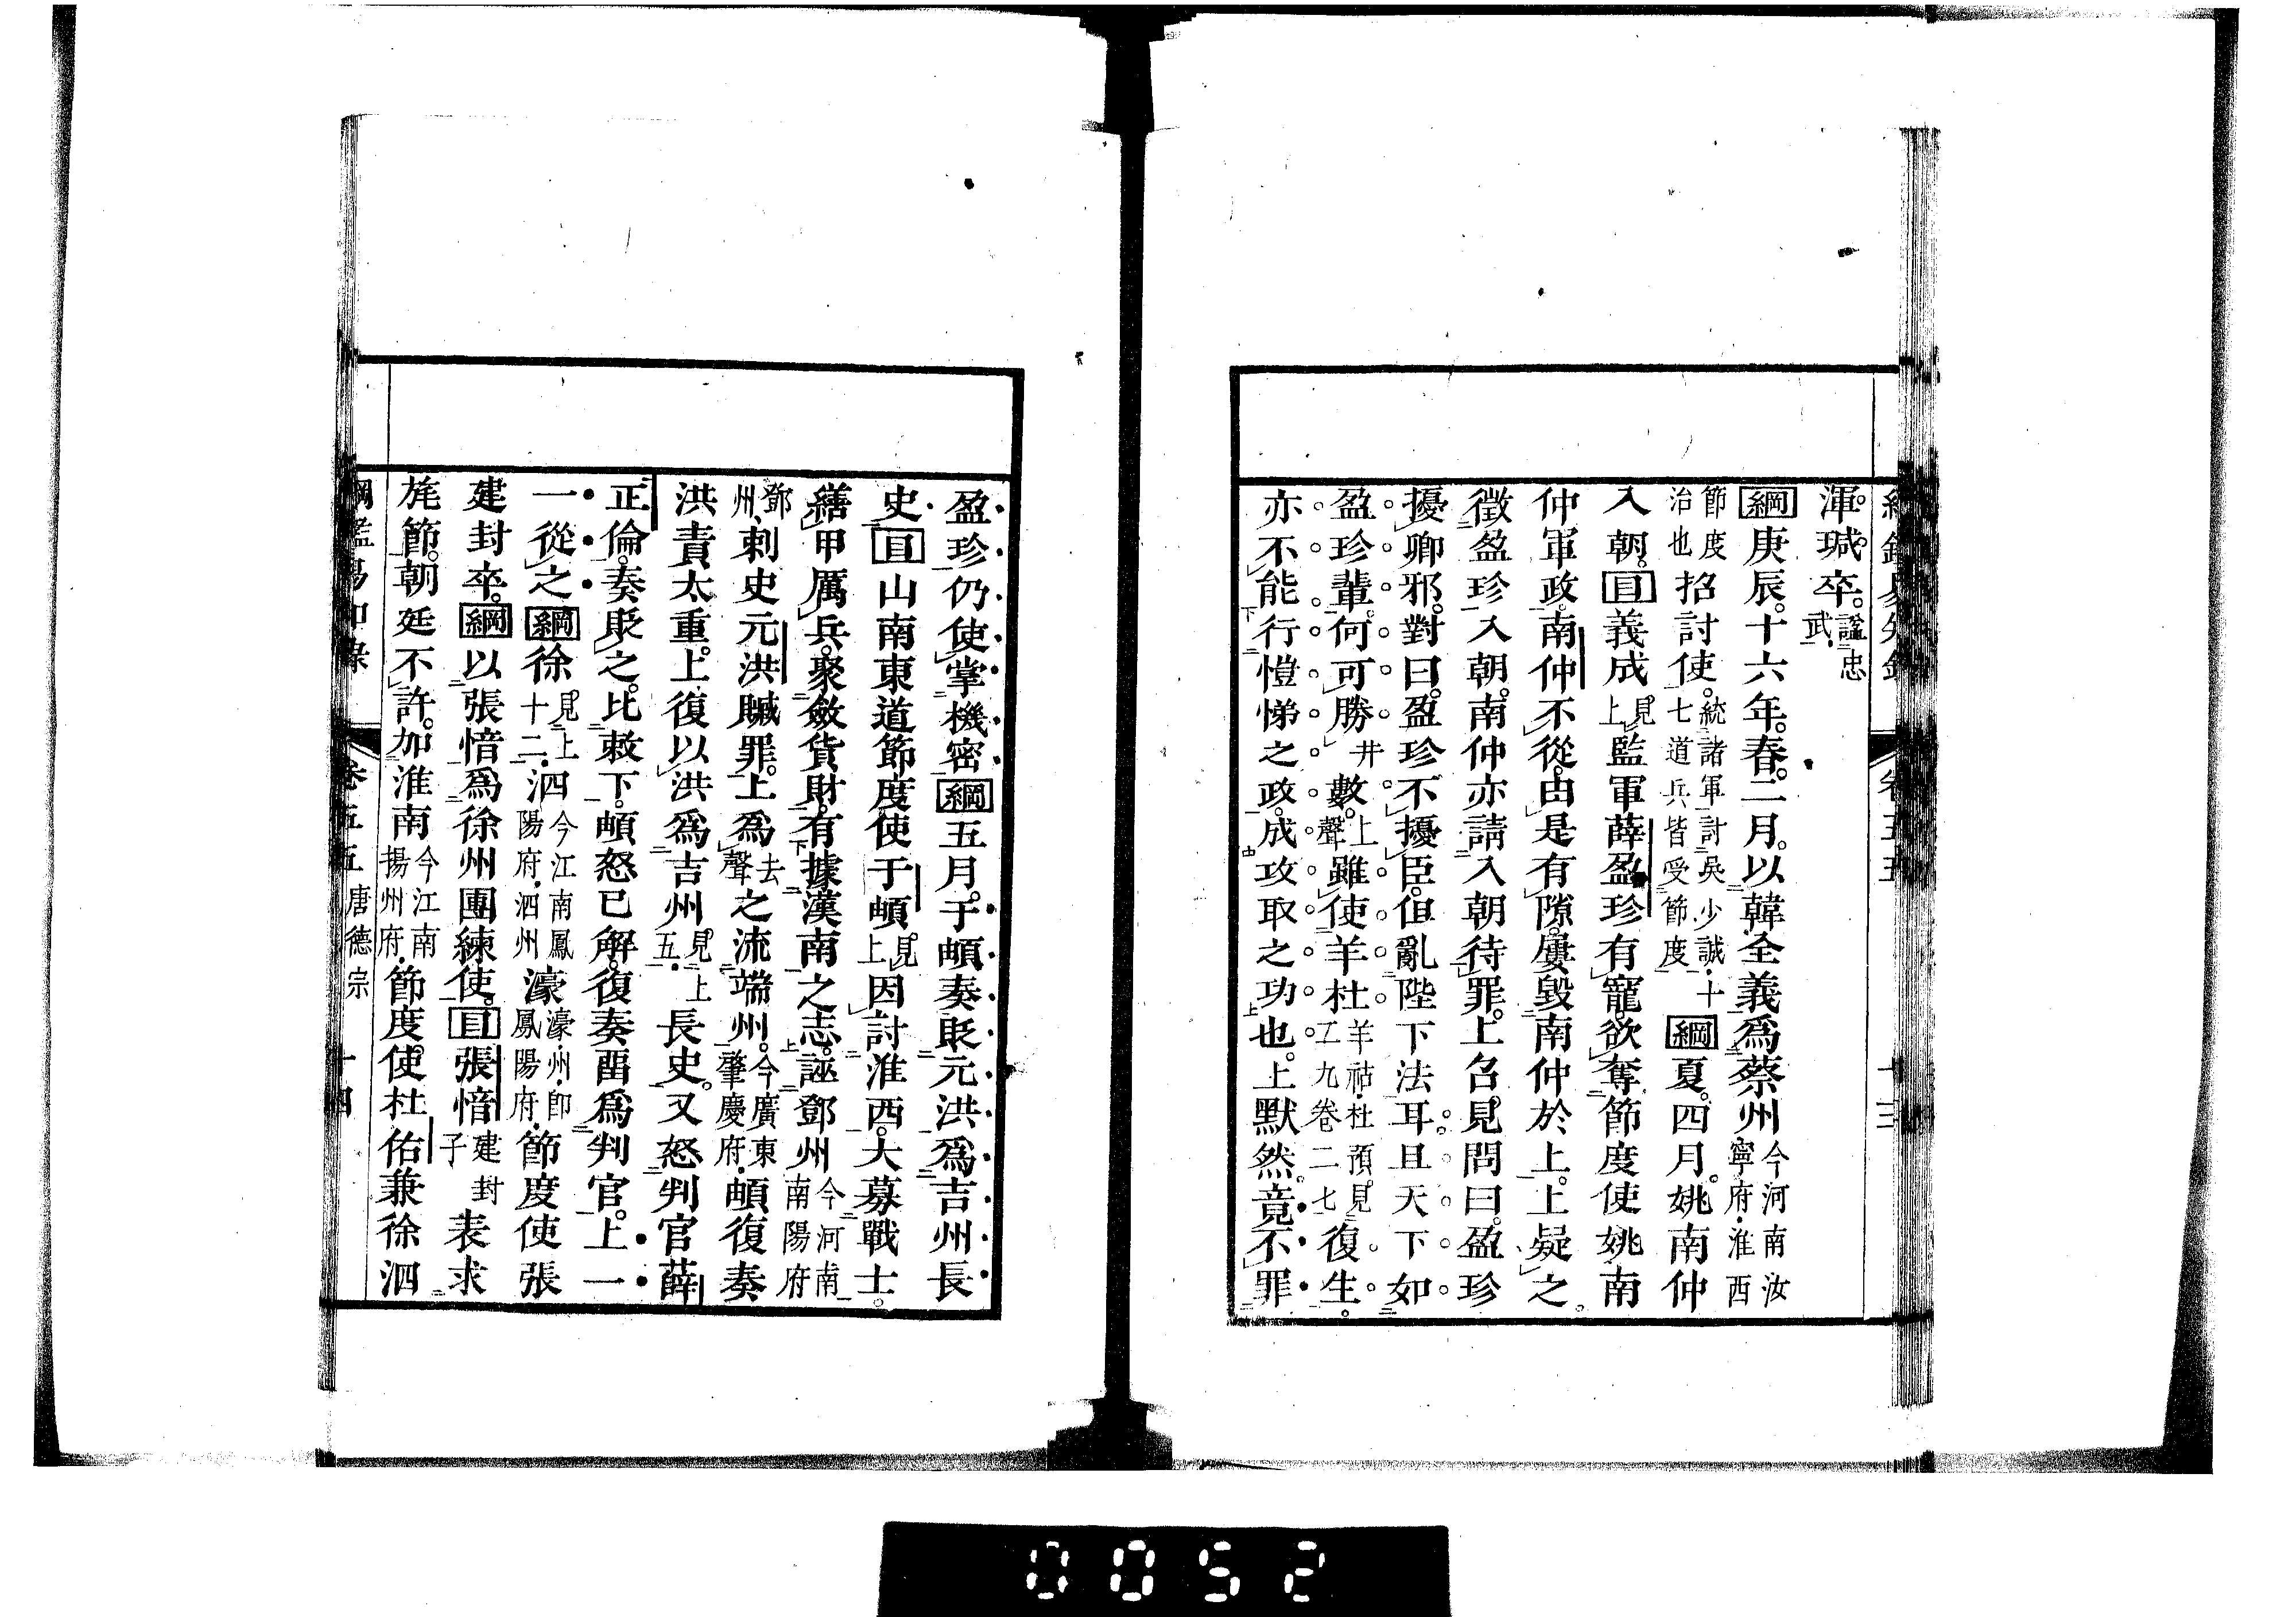 渾瑊卒。謚忠武
綱庚辰。十六年。春。二月。以韓全義爲蔡州今河南汝寧府淮西
節度治也招討使。統諸軍討吳少誠十七道兵皆受節度綱夏。四月。姚南仲
入朝。目義成見上監軍薛盈珍有寵。欲奪節度使姚南
仲軍政。南仲不從。由是有隙。屢毀南仲於上。上疑之。
徵盈珍入朝。南仲亦請入朝待罪。上召見問曰。盈珍
擾卿邪。對曰。盈珍不擾臣。但亂陛下法耳。且天下如
盈珍輩。何可勝升數。上聲雖使羊杜羊祜杜預見工九卷二七復生。
亦不能行愷悌之政。成攻取之功也。上默然。竟不罪
卷五五 十三
盈珍仍使掌機密綱五月。于頔奏貶元洪爲吉州長
史目山南東道節度使于頔見上因討淮西。大募戰士。
繕甲厲兵。聚斂貨財。有據漢南之志。誣鄧州今河南南陽府
鄧州刺史元洪贓罪。上爲去聲之流端州。今廣東肇慶府頔復奏
洪責太重。上復以洪爲吉州見上五長史。又怒判官薛
正倫。奏貶之。比敕下。頔怒已解。復奏畱爲判官。上一
一從之綱徐見上十二泗今江南鳳陽府泗州濠濠州卽鳳陽府節度使張
建封卒。綱以張愔爲徐州團練使。目張愔建封子表求
旄節。朝廷不許。加淮南今江南揚州府節度使杜佑兼徐泗
綱鑑易知錄 卷五五 唐德宗 十四
0052